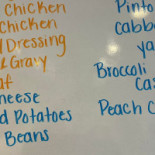 Chicken
Chicken
Dressing
Gravy
af
heese
d Potatoes
Beans
Pinto
cabb
ya
Broccoli
Cas
Peach C